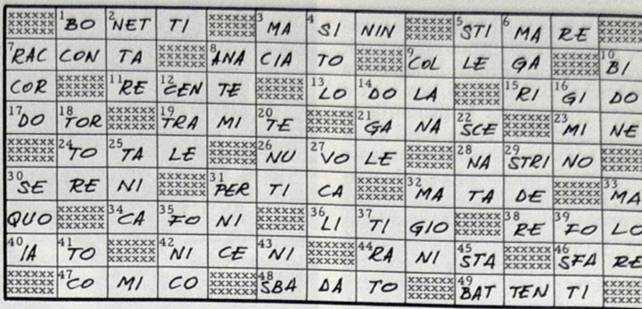 1 BO 2 NET TI 3 MA 4 SI NIN 5 STI 6 MA RE
7 RAC CON TA 8 ANA CIA TO 9 COL LE GA 10 BI
COR 11 RE 12 CEN TE 13 LO 14 DO LA 15 RI 16 GI DO
17 DO 18 TOR 19 TRA MI 20 TE 21 GA NA 22 SCE 23 MI NE
24 TO 25 TA LE 26 NU 27 VO LE 28 NA 29 STRI NO
30 SE RE NI 31 PER TI CA 32 MA TA DE 33 MA
QUO 34 CA 35 FO NI 36 LI 37 TI GIO 38 RE 39 FO LO
40 IA 41 TO 42 NI CE 43 NI 44 RA NI 45 STA 46 SFA RE
47 CO MI CO 48 SBA DA TO 49 BAT TEN TI